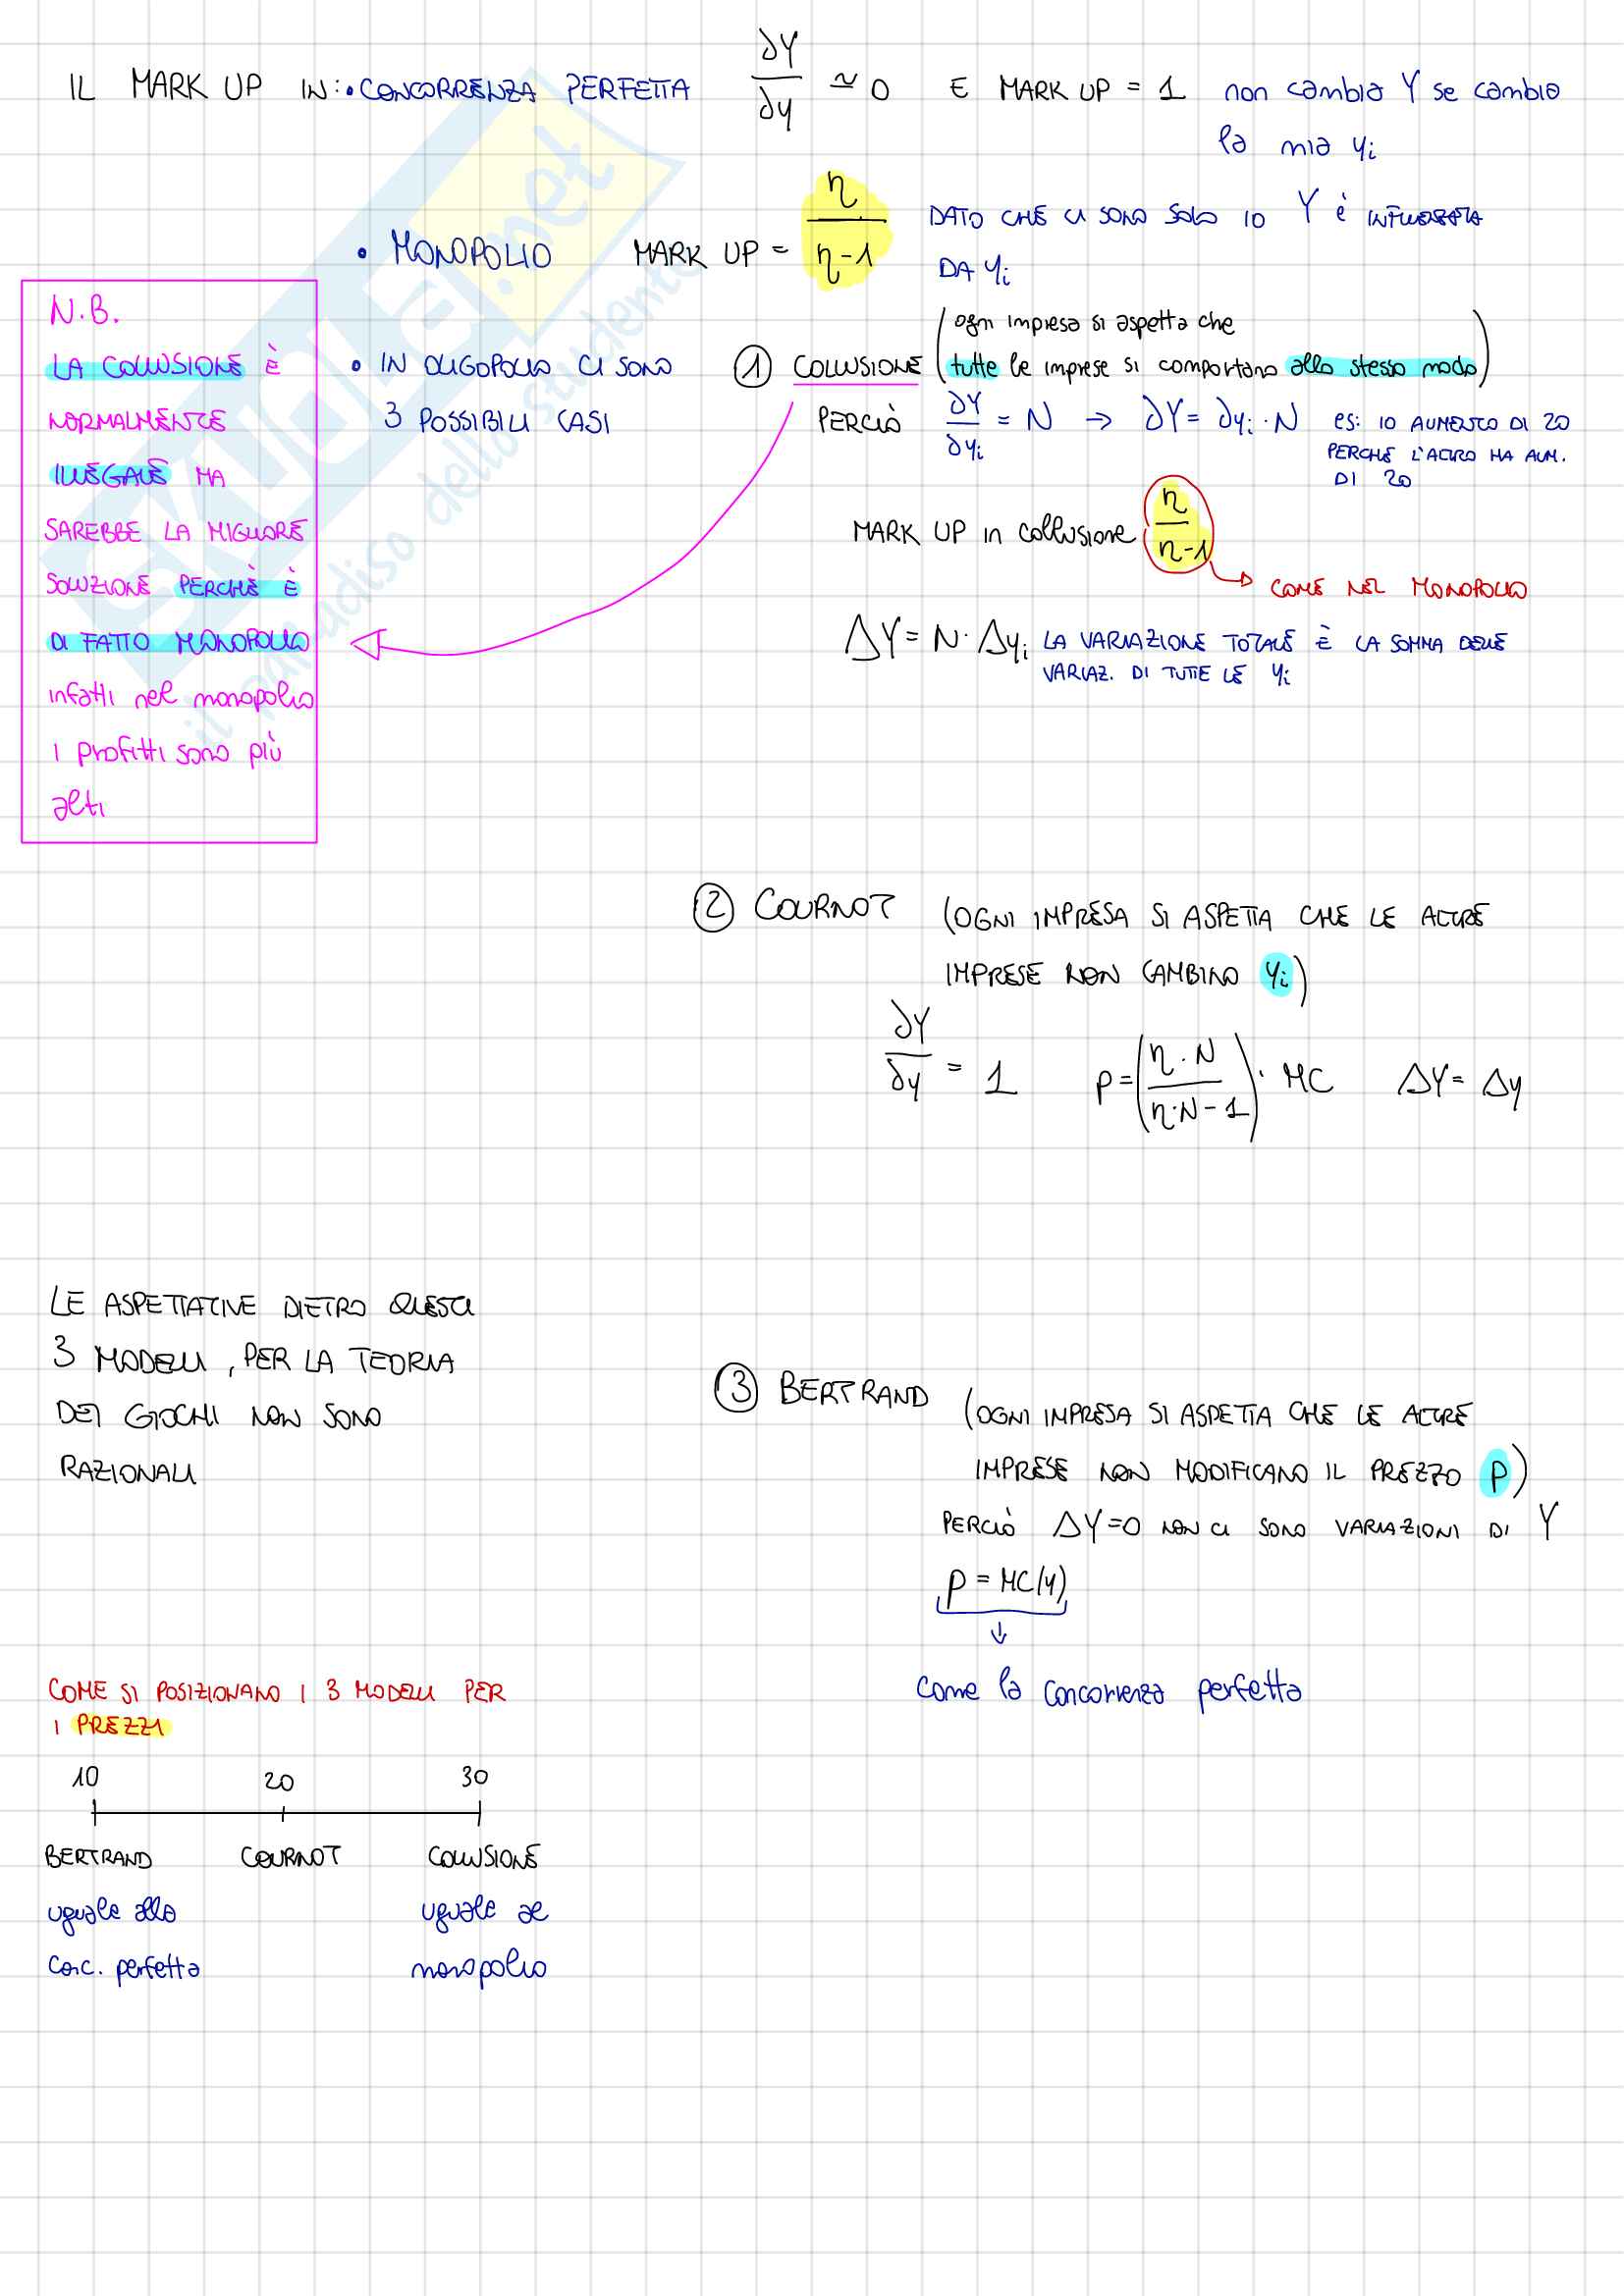 IL MARK UP IN: • CONCORRENZA PERFETTA ∂Y/∂y ≃ 0 E MARK UP = 1 non cambia Y se cambio
la mia yi
• MONOPOLIO MARK UP = η/(η-1) DATO CHE CI SONO SOLO IO Y è INFLUENZATA
DA yi
N.B.
LA COLLUSIONE È
NORMALMENTE
ILLEGALE MA
SAREBBE LA MIGLIORE
SOLUZIONE PERCHÈ È
DI FATTO MONOPOLIO
infatti nel monopolio
i profitti sono più
alti
• IN OLIGOPOLIO CI SONO
3 POSSIBILI CASI
① COLLUSIONE (ogni impresa si aspetta che
tutte le imprese si comportano allo stesso modo)
PERCIÒ ∂Y/∂yi = N → ∂Y = ∂yi · N es: IO AUMENTO DI 20
PERCHÈ L'ALTRO HA AUM.
DI 20
MARK UP in collusione η/(η-1)
COME NEL MONOPOLIO
ΔY = N · Δyi LA VARIAZIONE TOTALE È LA SOMMA DELLE
VARIAZ. DI TUTTE LE yi
② COURNOT (OGNI IMPRESA SI ASPETTA CHE LE ALTRE
IMPRESE NON CAMBINO yi)
∂Y/∂y = 1 P = (η·N/(η·N-1)) · MC ΔY = Δy
LE ASPETTATIVE DIETRO QUESTI
3 MODELLI, PER LA TEORIA
DEI GIOCHI NON SONO
RAZIONALI
③ BERTRAND (OGNI IMPRESA SI ASPETTA CHE LE ALTRE
IMPRESE NON MODIFICANO IL PREZZO P)
PERCIÒ ΔY=0 NON CI SONO VARIAZIONI DI Y
P = MC(y)
↓
Come la concorrenza perfetta
COME SI POSIZIONANO I 3 MODELLI PER
I PREZZI
10 20 30
BERTRAND COURNOT COLLUSIONE
uguale alla uguale al
conc. perfetta monopolio
SKUOLA.net
il paradiso dello studente